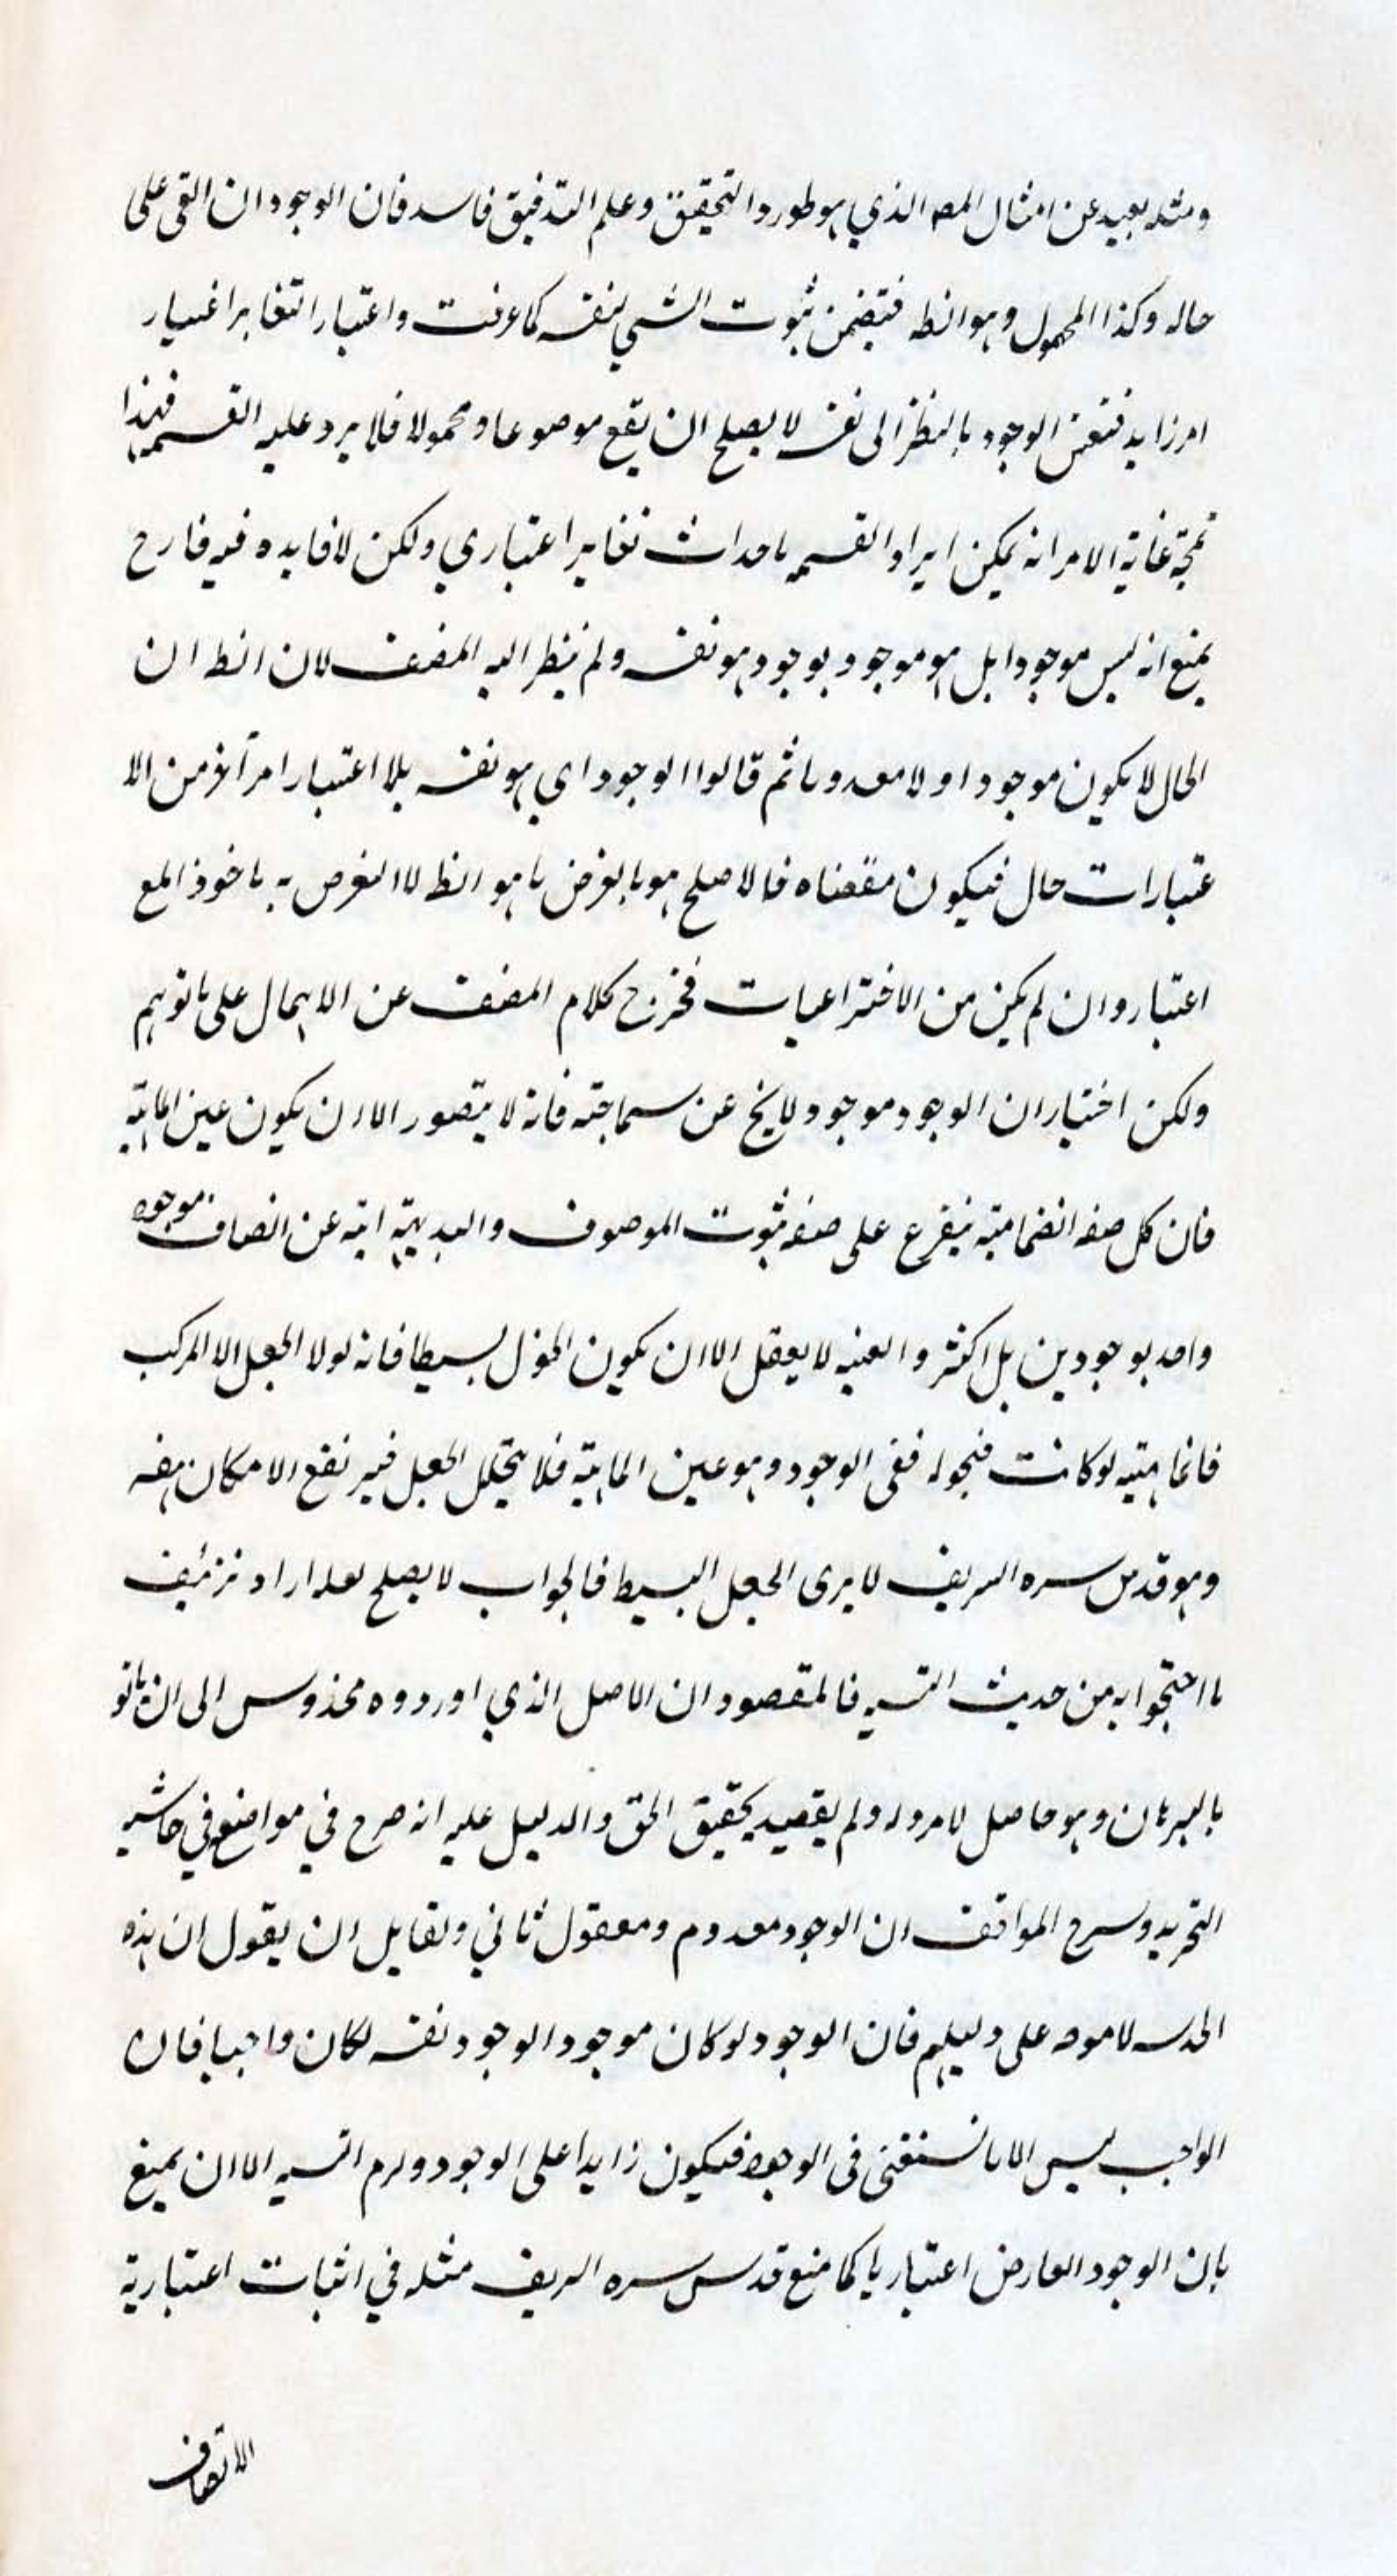 ومثله بعيد عن امثال المصه الذي هو طور والتحقيق وعلم التدقيق فاسد فان الوجود ان القى على
حاله وكذا المحمول وهو الظ فيتضمن ثبوت الشي لنفسه كما عرفت واعتبار التغاير اعتبار
امر زايد فنفس الوجود بالنظر الى نفسه لا يصلح ان يقع موضوعا ومحمولا فلا يرد عليه القسمه فهذا
غاية الامر انه يمكن ايراد القسمه باحداث تغاير اعتباري ولكن لا فايده فيه
يمنع انه ليس موجودا بل هو موجود بوجود هو نفسه ولم ينظر اليه المصنف لان الظ ان
الحال لا يكون موجودا ولا معدوما ثم قالوا الوجود اي هو نفسه بلا اعتبار امر آخر من الا
عتبارات حال فيكون مقتضاه فالاصلح هو ما هو الظ لا الفرض به ماخوذ المع
اعتبار وان لم يكن من الاختراعيات فخرج كلام المصنف عن الاهمال على ما توهم
ولكن اختيار ان الوجود موجود لا يخ عن سماجته فانه لا يتصور الا ان يكون عين الماهية
فان كل صفه انضمامية يتفرع على صفه ثبوت الموصوف والبديهة ابيه عن اتصاف موجود
واحد بوجودين بل اكثر والعينيه لا يعقل الا ان يكون الجعل بسيطا فانه لولا الجعل الا المركب
فالماهيته لو كانت مجعوله ففى الوجود وهو عين الماهية فلا يتخلل الجعل فيرتفع الامكان هف
وهو قدس سره الشريف لا يرى الجعل البسيط فالجواب لا يصلح لعله اراد تزئيف
ما احتجوا به من حديث القسمه فالمقصود ان الاصل الذي اوردوه مخدوش الى ان ياتو
بالبرهان وهو حاصل لا مرد له ولم يقصد تحقيق الحق والدليل عليه انه صرح في مواضع في حاشيه
التجريد وشرح المواقف ان الوجود معدوم ومعقول ثاني ولقايل ان يقول ان هذه
على دليلهم فان الوجود لو كان موجودا لوجود نفسه لكان واجبا فان
الواجب ليس الا ما تستغنى فى الوجود فيكون زايدا على الوجود ولزم التسه الا ان يمنع
بان الوجود العارض اعتباريا كما منع قدس سره الشريف مثله في اثبات اعتبارية
الاتصاف